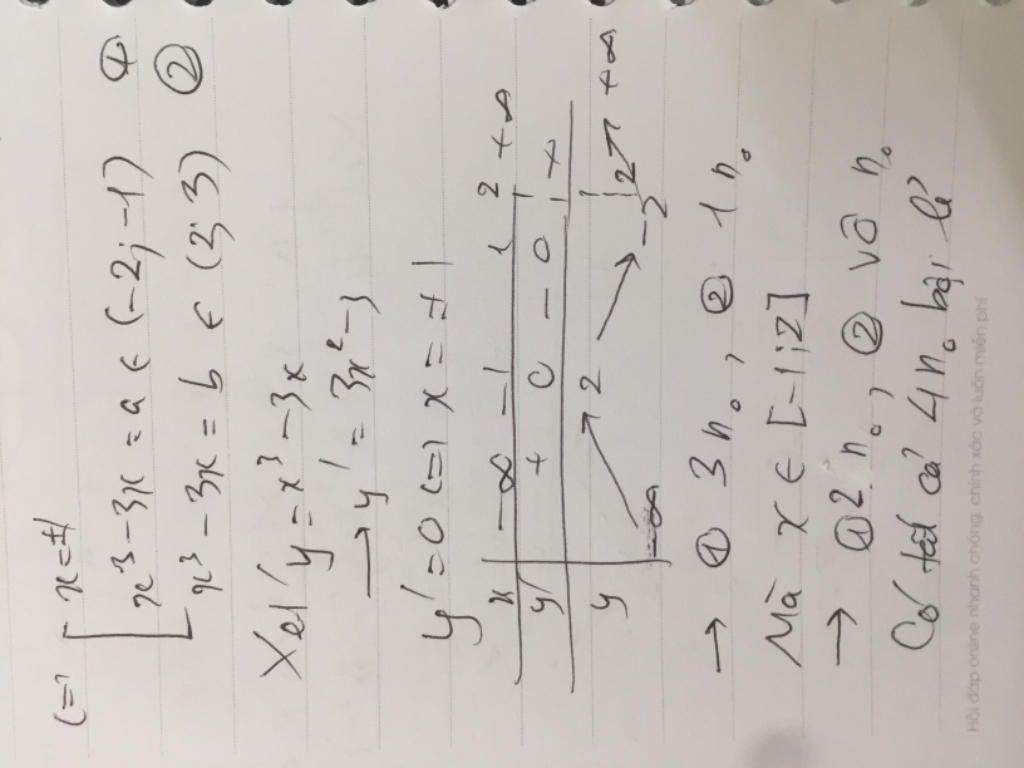 <=> [ x = ±1
x³ - 3x = a ∈ (-2; -1) ①
x³ - 3x = b ∈ (2; 3) ②
Xét y = x³ - 3x
→ y' = 3x² - 3
y' = 0 <=> x = ±1
x -∞ -1 1 2 +∞
y' + 0 - 0 + +
y -∞ ↗ 2 ↗ -2 2 ↗ +∞
→ ① 3 n₀, ② 1 n₀
Mà x ∈ [-1; 2]
→ ① 2 n₀, ② vô n₀
Có tất cả 4 n₀ bội lẻ
Hỏi đáp online nhanh chóng, chính xác và luôn miễn phí